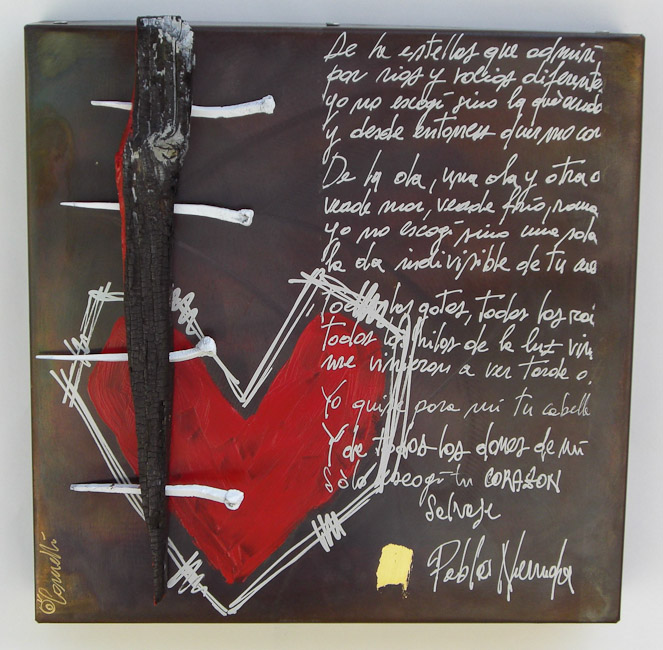 De la estellas que admiré,
por rios y rocios diferente
yo no escogí sino la que
y desde entonces duermo con
De la ola, una ola y otra o
verde mar, verde frío, rama
yo no escogí sino una sola
la ola indivisible de tu
Todas las gotas, todas las raí
todos los hilos de la luz vin
me vinieron a ver tarde o.
Yo quise para mí tu cabelle
Y de todos los dones de mi
sólo escogí tu CORAZON
Salvaje
Pablo Neruda